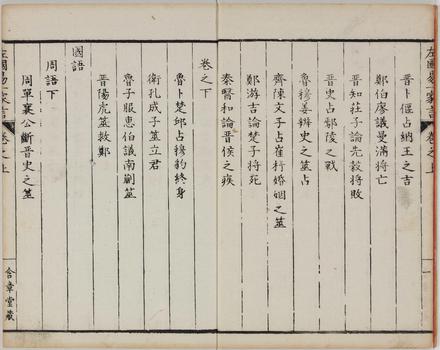 左國易一家言 卷之上
晉卜偃占納王之吉
鄭伯廖議曼滿將亡
晉知莊子論先縠將敗
晉史占鄢陵之戰
魯穆姜辯史之筮占
齊陳文子占崔杼婚姻之筮
鄭游吉論楚子將死
秦醫和論晉侯之疾
卷之下
魯卜楚邱占穆豹終身
衛孔成子筮立君
魯子服惠伯議南蒯筮
晉陽虎筮救鄭
國語
周語下
周單襄公斷晉史之筮
左國易一家言 卷之上
含章堂藏